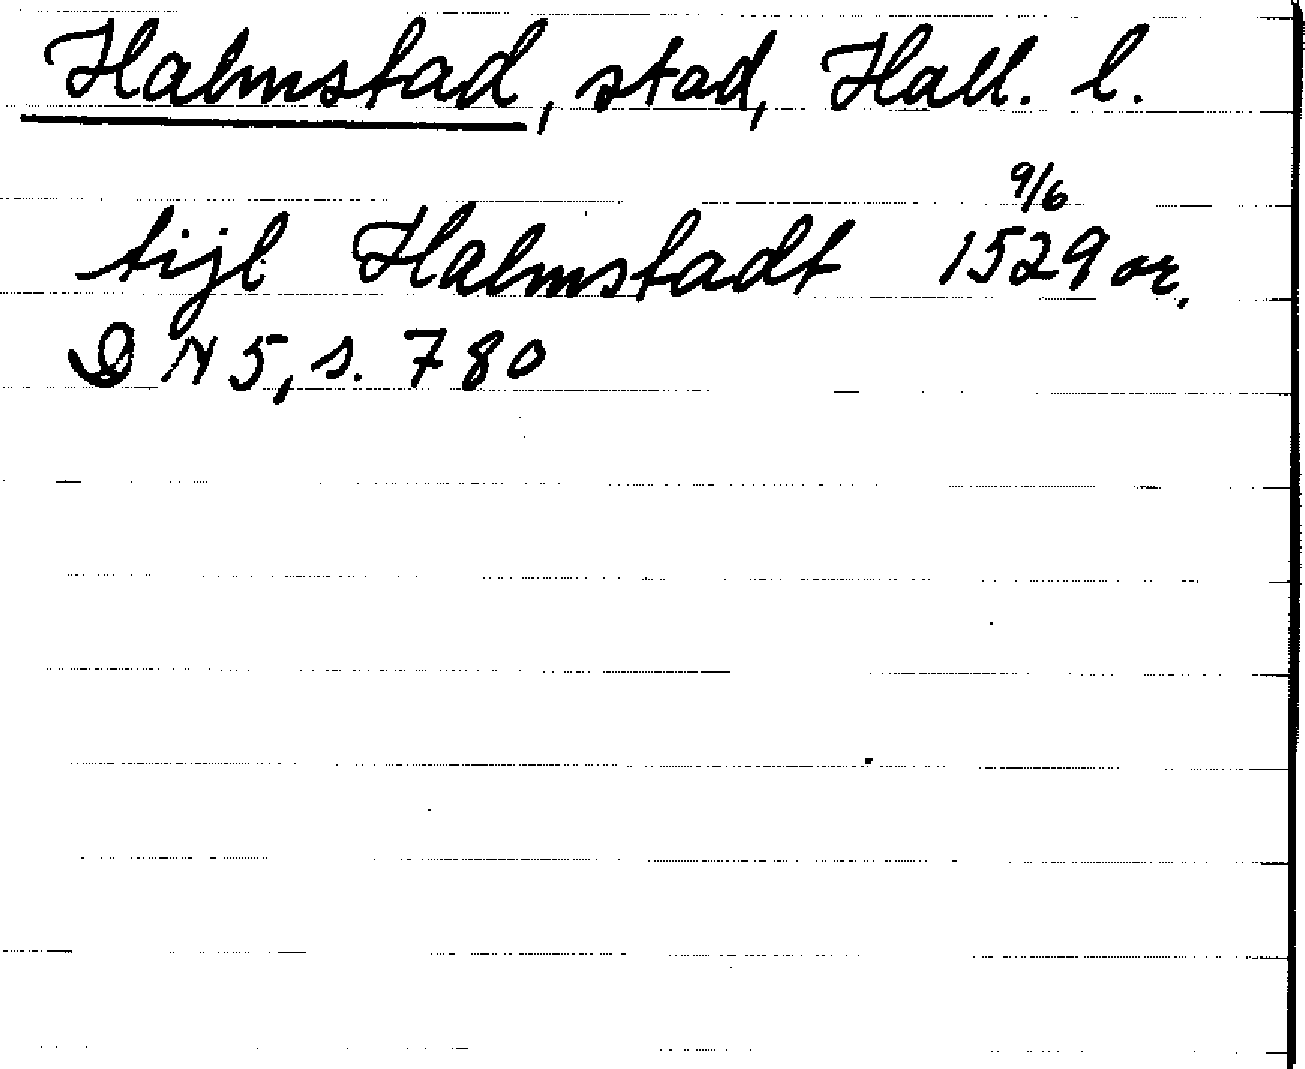 Halmstad, stad, Hall. l.
9/6
tijl Halmstadt 1529 or.
DN 5, s. 780